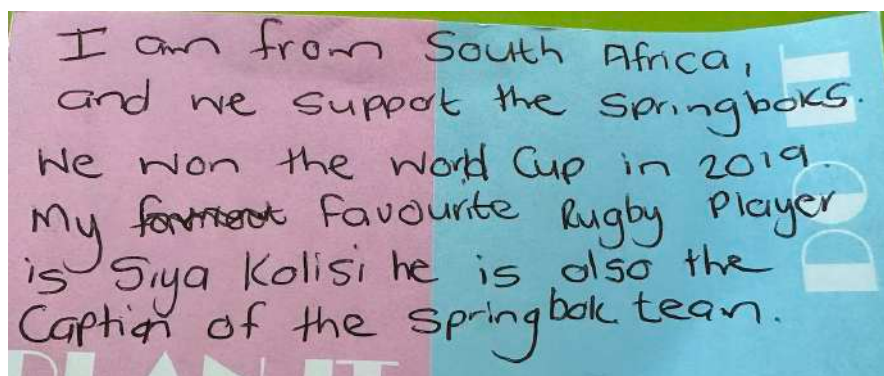 I am from South Africa,
and we support the springboks.
We won the World Cup in 2019.
My favourite Rugby Player
is Siya Kolisi he is also the
Caption of the springbok team.
DO IT
PLAN IT